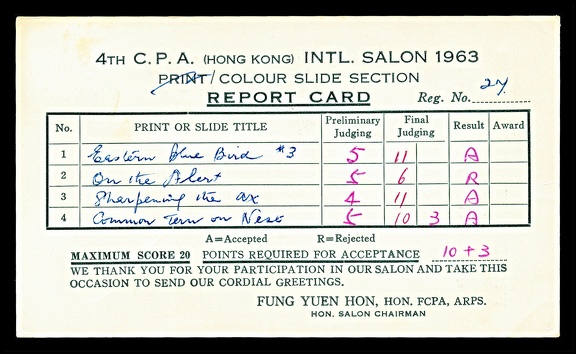 4TH C.P.A. (HONG KONG) INTL. SALON 1963
PRINT/COLOUR SLIDE SECTION
REPORT CARD Reg. No. 27
No. PRINT OR SLIDE TITLE Preliminary Judging Final Judging Result Award
1 Eastern Blue Bird #3 5 11 A
2 On the Alert 5 6 R
3 Sharpening the ax 4 11 A
4 Common Tern on Nest 5 10 3 A
A=Accepted R=Rejected
MAXIMUM SCORE 20 POINTS REQUIRED FOR ACCEPTANCE 10+3
WE THANK YOU FOR YOUR PARTICIPATION IN OUR SALON AND TAKE THIS
OCCASION TO SEND OUR CORDIAL GREETINGS.
FUNG YUEN HON, HON. FCPA, ARPS.
HON. SALON CHAIRMAN